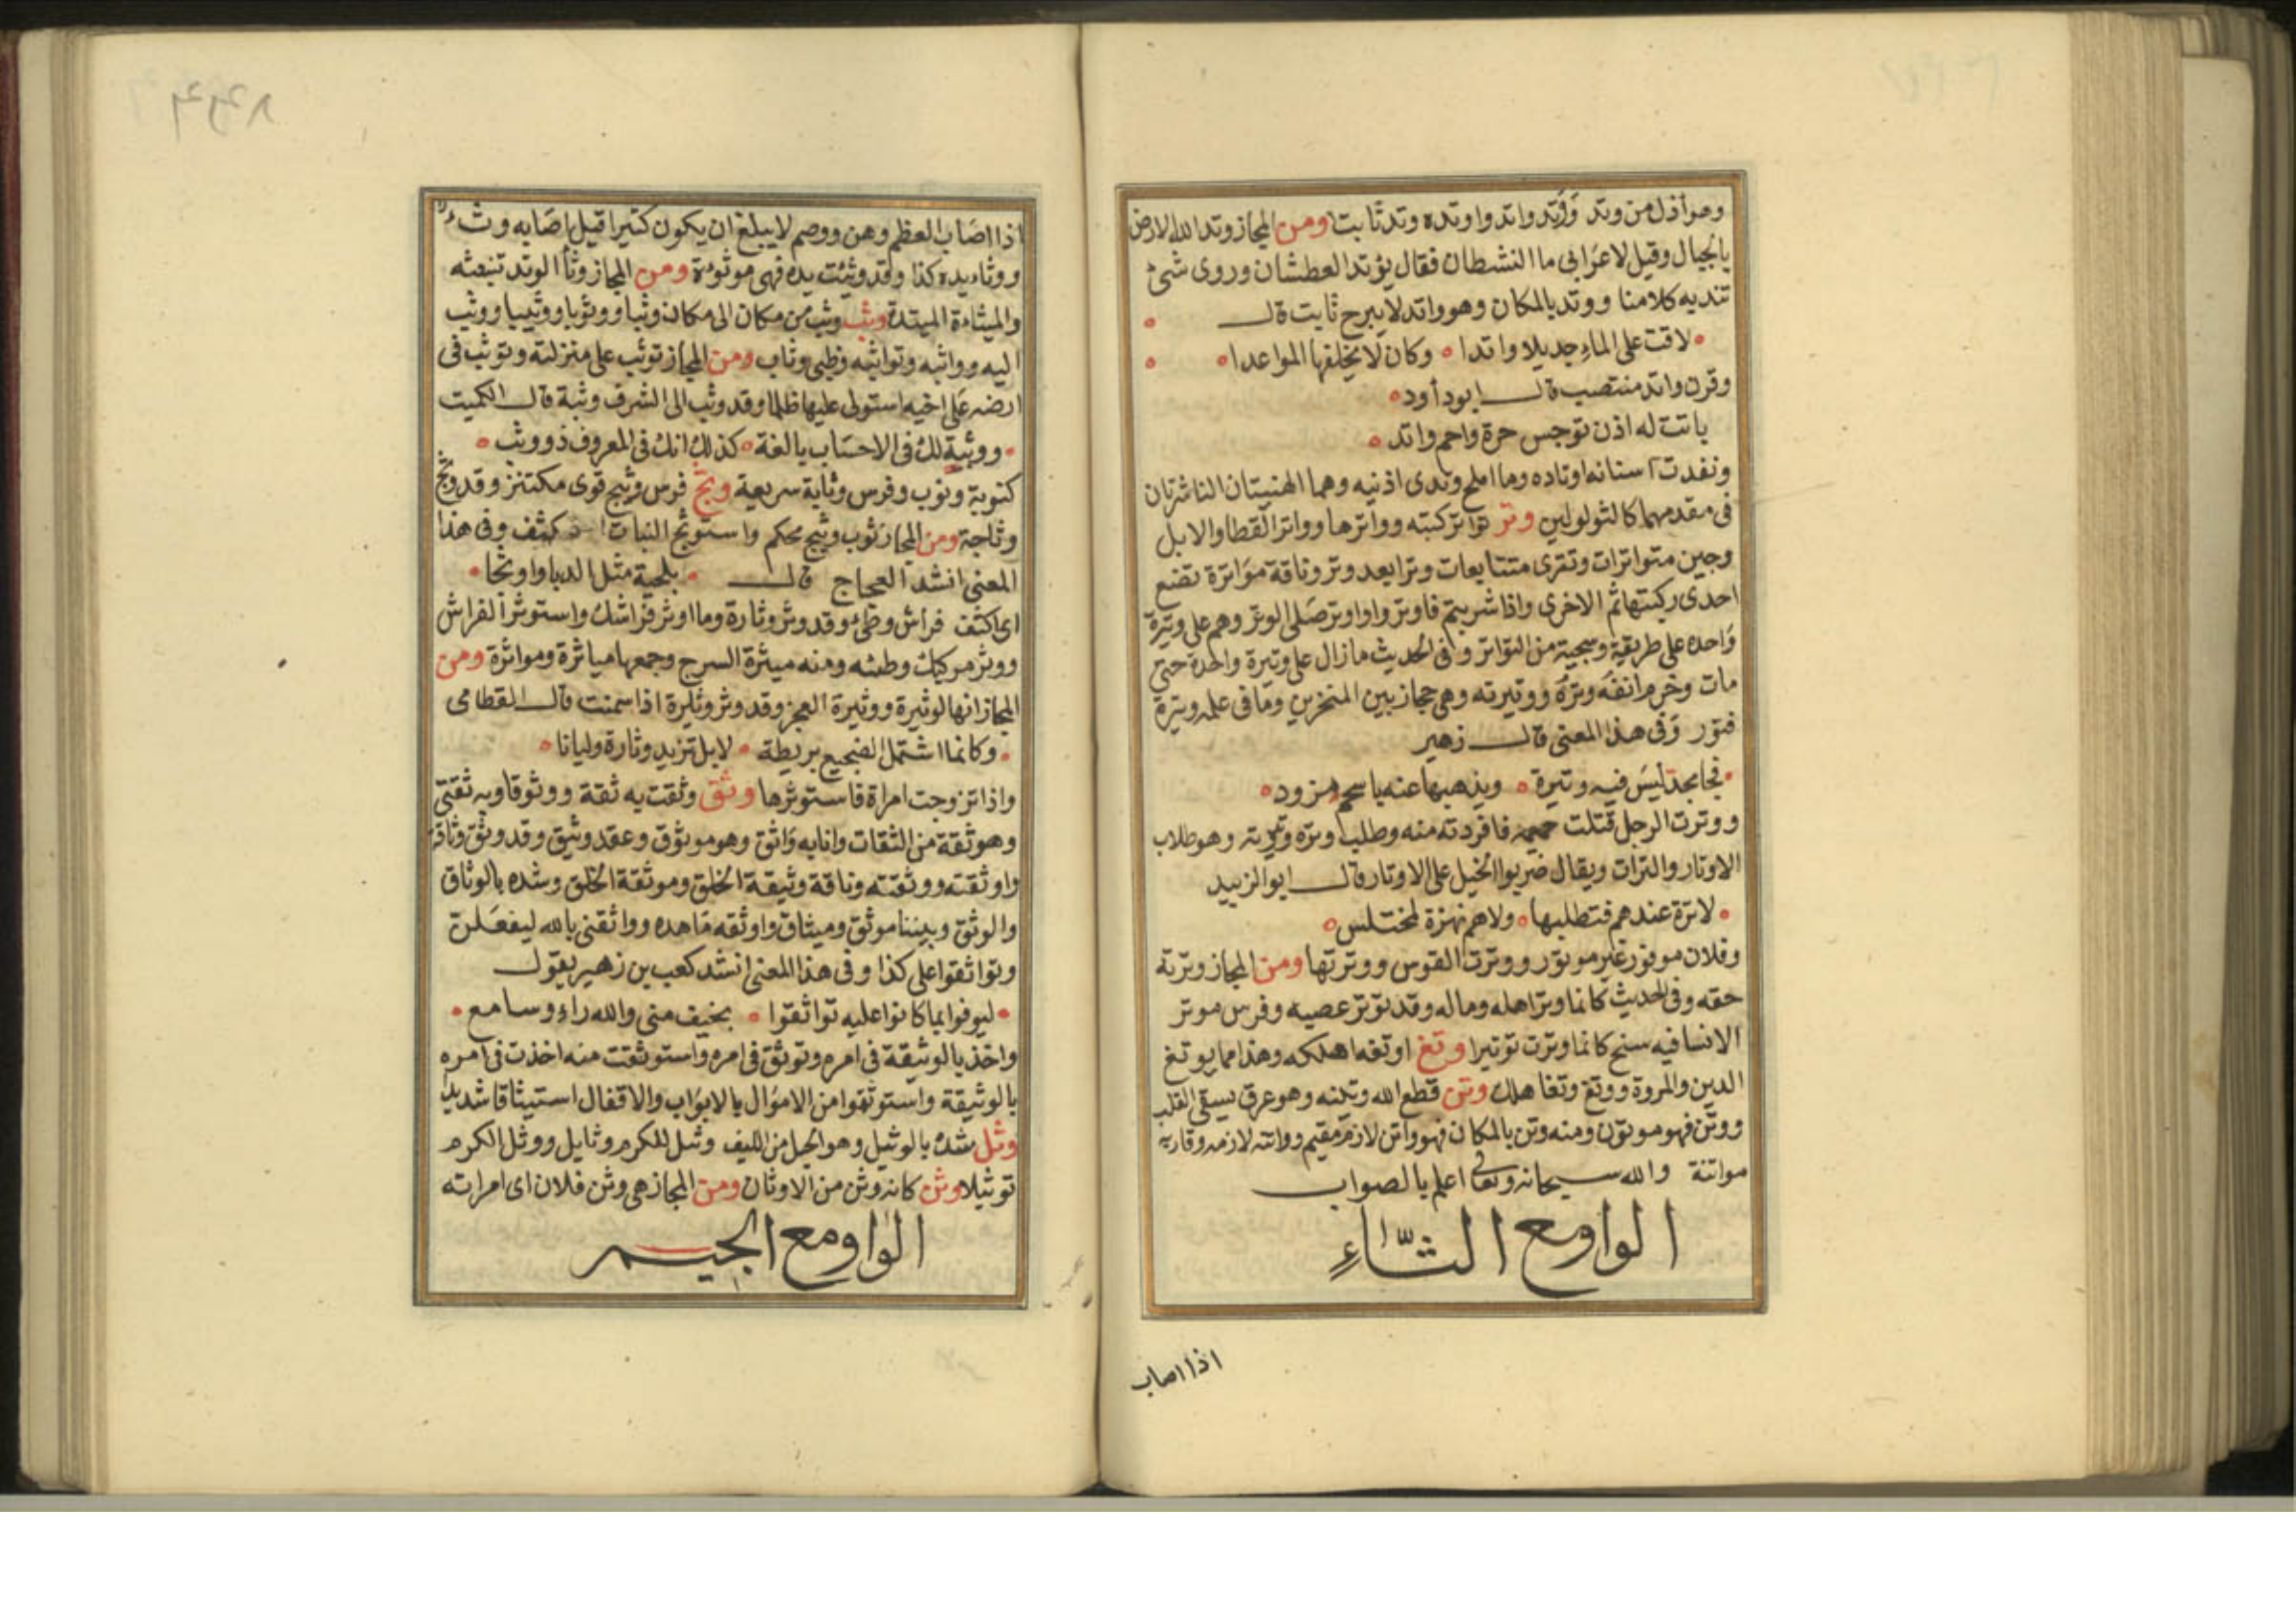 وهو أذل من وتد وَوَتِد واتد واوتده وتد ثابت ومن المجاز وتد الله الارض
بالجبال وقيل لاعرابى ما النشطان فقال يوتد العطشان وروى شئ
تنديه كلامنا ووتد بالمكان وهو واتد لا يبرح ثابت قال
لاقت على الماء جديلا واتدا وكان لا يخلفها المواعدا
وقرن واتد منتصب قال ابو دأود
باتت له اذن توجس حرة واحم واتد
ونفدت اسنانه اوتاده وما املح وتدى اذنيه وهما الهنيتان الناشزتان
فى مقدمهما كالثولولين وتر تواتر كتبه وواترها وواتر القطا والابل
وجين متواترات وتترى متتابعات وترا بعد وتر وناقة مواترة تضع
احدى ركبتها ثم الاخرى واذا شربتم فاوتروا واوتر صلى الوتر وهم على وتيرة
واحده على طريقة وسجية من التواتر وفى الحديث مازال على وتيرة واحدة حتى
مات وخرم انفه وتره ووتيرته وهى حجاز بين المنخرين وما فى علمه وتيرة
فتور وفى هذا المعنى قال زهير
نجا مجد ليس فيه وتيرة ويذهبها عنه باسحم مزود
ووترت الرجل قتلت حميمه فافردته منه وطلب وتره وترته وهو طلاب
الاوتار والترات ويقال ضربوا الخيل على الاوتار قال ابو الزبيد
لا ترة عندهم فتطلبها ولا هم نهزة لمختلس
وفلان موفور غير موتور ووترت القوس ووترتها ومن المجاز وترته
حقه وفى الحديث كانما وتر اهله وماله وقد توتر عصبه وفرس موتر
الانسا فيه سنح كانما وترت توتيرا وتغ اوتغه اهلكه وهذا مما يوتغ
الدين والمروة ووتغ وتغا هلك وتن قطع الله وتينه وهو عرق يسقى القلب
ووتن فهو موتون ومنه وتن بالمكان فهو واتن لازم مقيم وواتنه لازمه وقاربه
مواتنة والله سبحانه وتعالى اعلم بالصواب
الواو مع الثّاءِ
اذا اصاب
اذا اصاب العظم وهن ووصم لا يبلغ ان يكون كثيرا قيل اصابه وثء
ووثاء يده كذا وقد وثيت يده فهى موثوءة ومن المجاز وثأ الوتد تبعثه
والميثاءة الميتدة وثب وثب من مكان الى مكان وثبا ووثوبا ووثيبا ووثب
اليه وواثبه وتواثبه وظبى وثاب ومن المجاز توثب على منزلته وتوثب فى
ارضه على اخيه استولى عليها ظلما وقد وثب الى الشرف وثبة قال الكميت
ووثبة لك فى الاحساب بالغة كذلك انك فى المعروف ذو وثب
كثوبة وثوب وفرس وثابة سريعة وثج فرس وثيج قوى مكتنز وقد وثج
وثاجة ومن المجاز ثوب وثيج محكم واستوثج النبات كثف وفى هذا
المعنى انشد العجاج قال بلجية مثل الدبا واوثجا
اى اكثف فراش وطئ وقد وثر وثارة وما اوثر فراشك واستوثر الفراش
ووثر مركبك وطئه ومنه ميثرة السرج وجمعها مياثرة ومواثرة ومن
المجاز انها لوثيرة ووثيرة العجز وقد وثر وثارة اذا سمنت قال القطامى
وكانما اشتمل الضجيع بريطة لا بل تزيد وثارة وليانا
واذا تزوجت امراة فاستوثرها وثق وثقت به ثقة ووثوقا وبه ثقتى
وهو ثقة من الثقات وانا به واثق وهو موثوق وعقد وثيق وقد وثق وثاقة
واوثقته ووثقته وناقة وثيقة الخلق وموثقة الخلق وشده بالوثاق
والوثق وبيننا موثق وميثاق واوثقه عاهده وواثقنى بالله ليفعلن
وتواثقوا على كذا وفى هذا المعنى انشد كعب بن زهير يقول
ليوفوا بما كانوا عليه تواثقوا بخيف منى والله راء وسامع
واخذ بالوثيقة فى امره وتوثق فى امره واستوثقت منه اخذت فى امره
بالوثيقة واستوثقوا من الاموال بالابواب والاقفال استيثاقا شديدا
وثل شده بالوثيل وهو الحبل من الليف وثل للكرم وثايل ووثل الكرم
توثيلا وثن كانه وثن من الاوثان ومن المجاز هى وثن فلان اى امراته
الواو مع الجيم